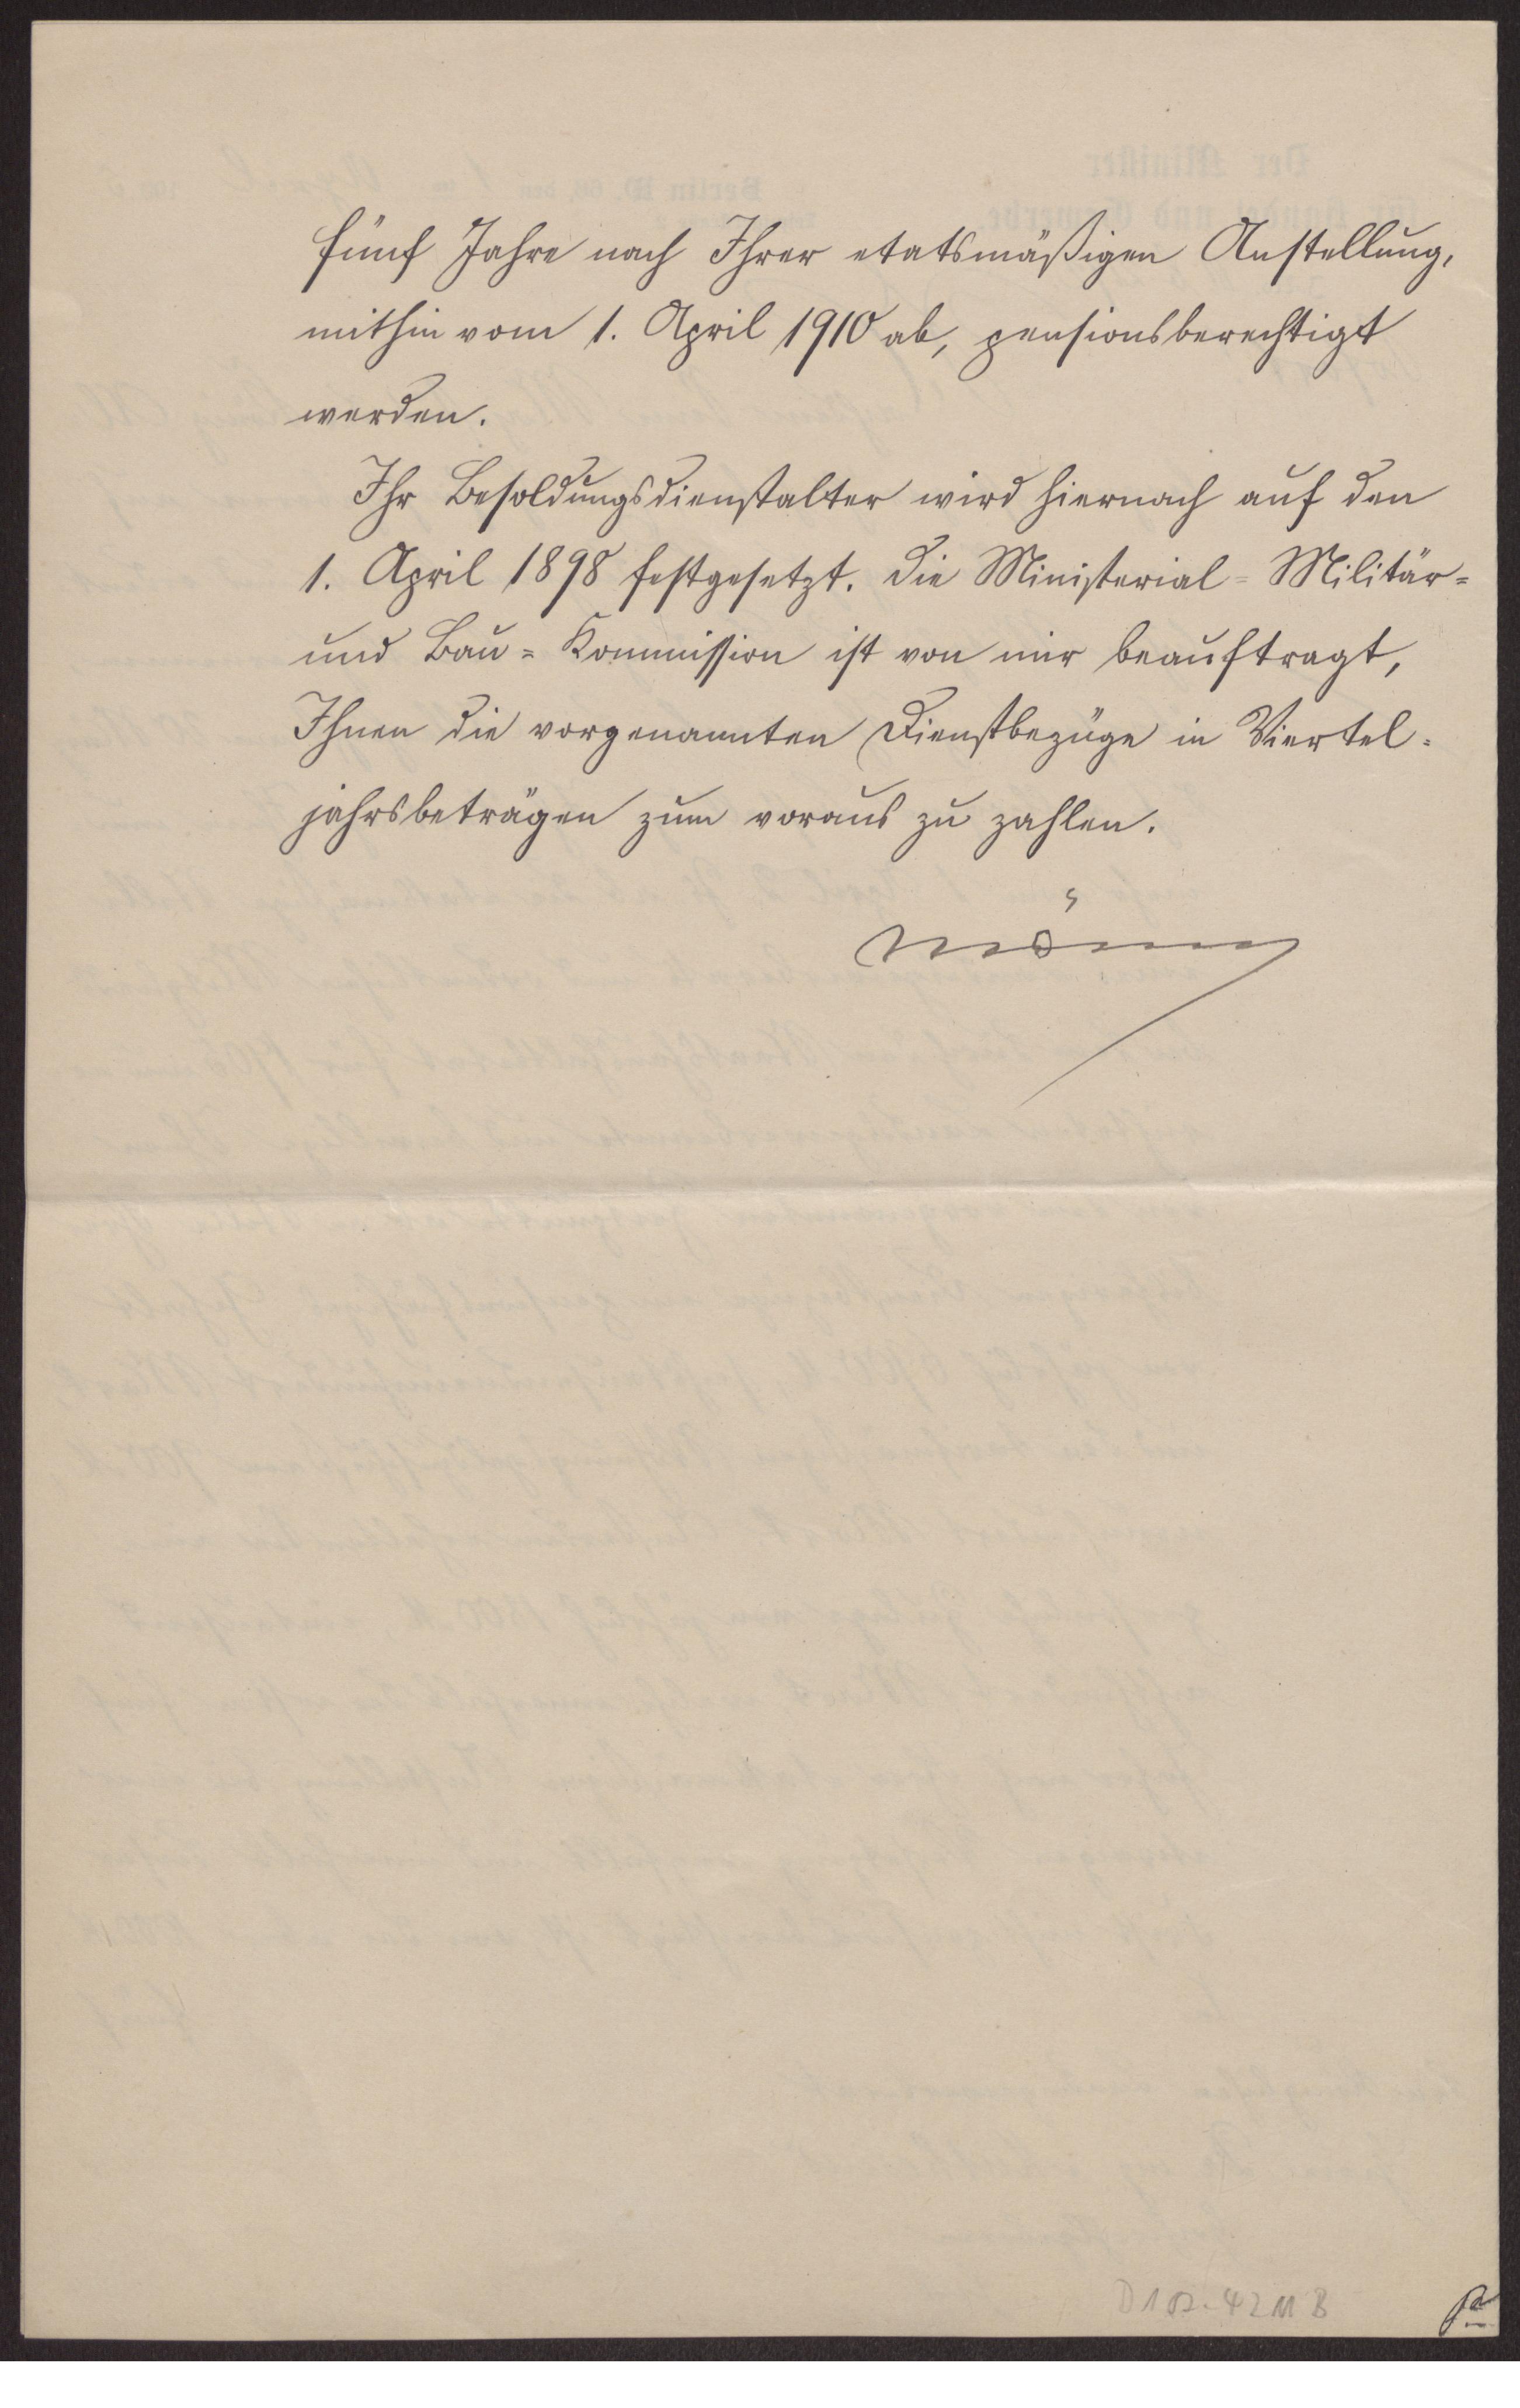 fünf Jahre nach Ihrer etatsmäßigen Anstellung,
mithin vom 1. April 1910 ab, pensionsberechtigt
werden.
Ihr Besoldungsdienstalter wird hiernach auf den
1. April 1898 festgesetzt. Die Ministerial- Militär-
und Bau- Kommission ist von mir beauftragt,
Ihnen die vorgenannten Dienstbezüge in Viertel-
jahrsbeträgen zum voraus zu zahlen.